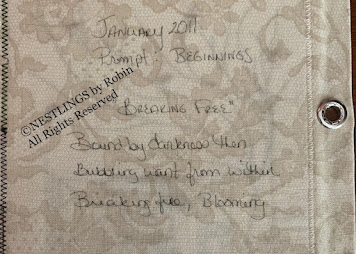 JANUARY 2011
Prompt: BEGINNINGS
©NESTLINGS by Robin
All Rights Reserved
"BREAKING FREE"
Bound by darkness then
Budding want from within
Breaking free, Blooming